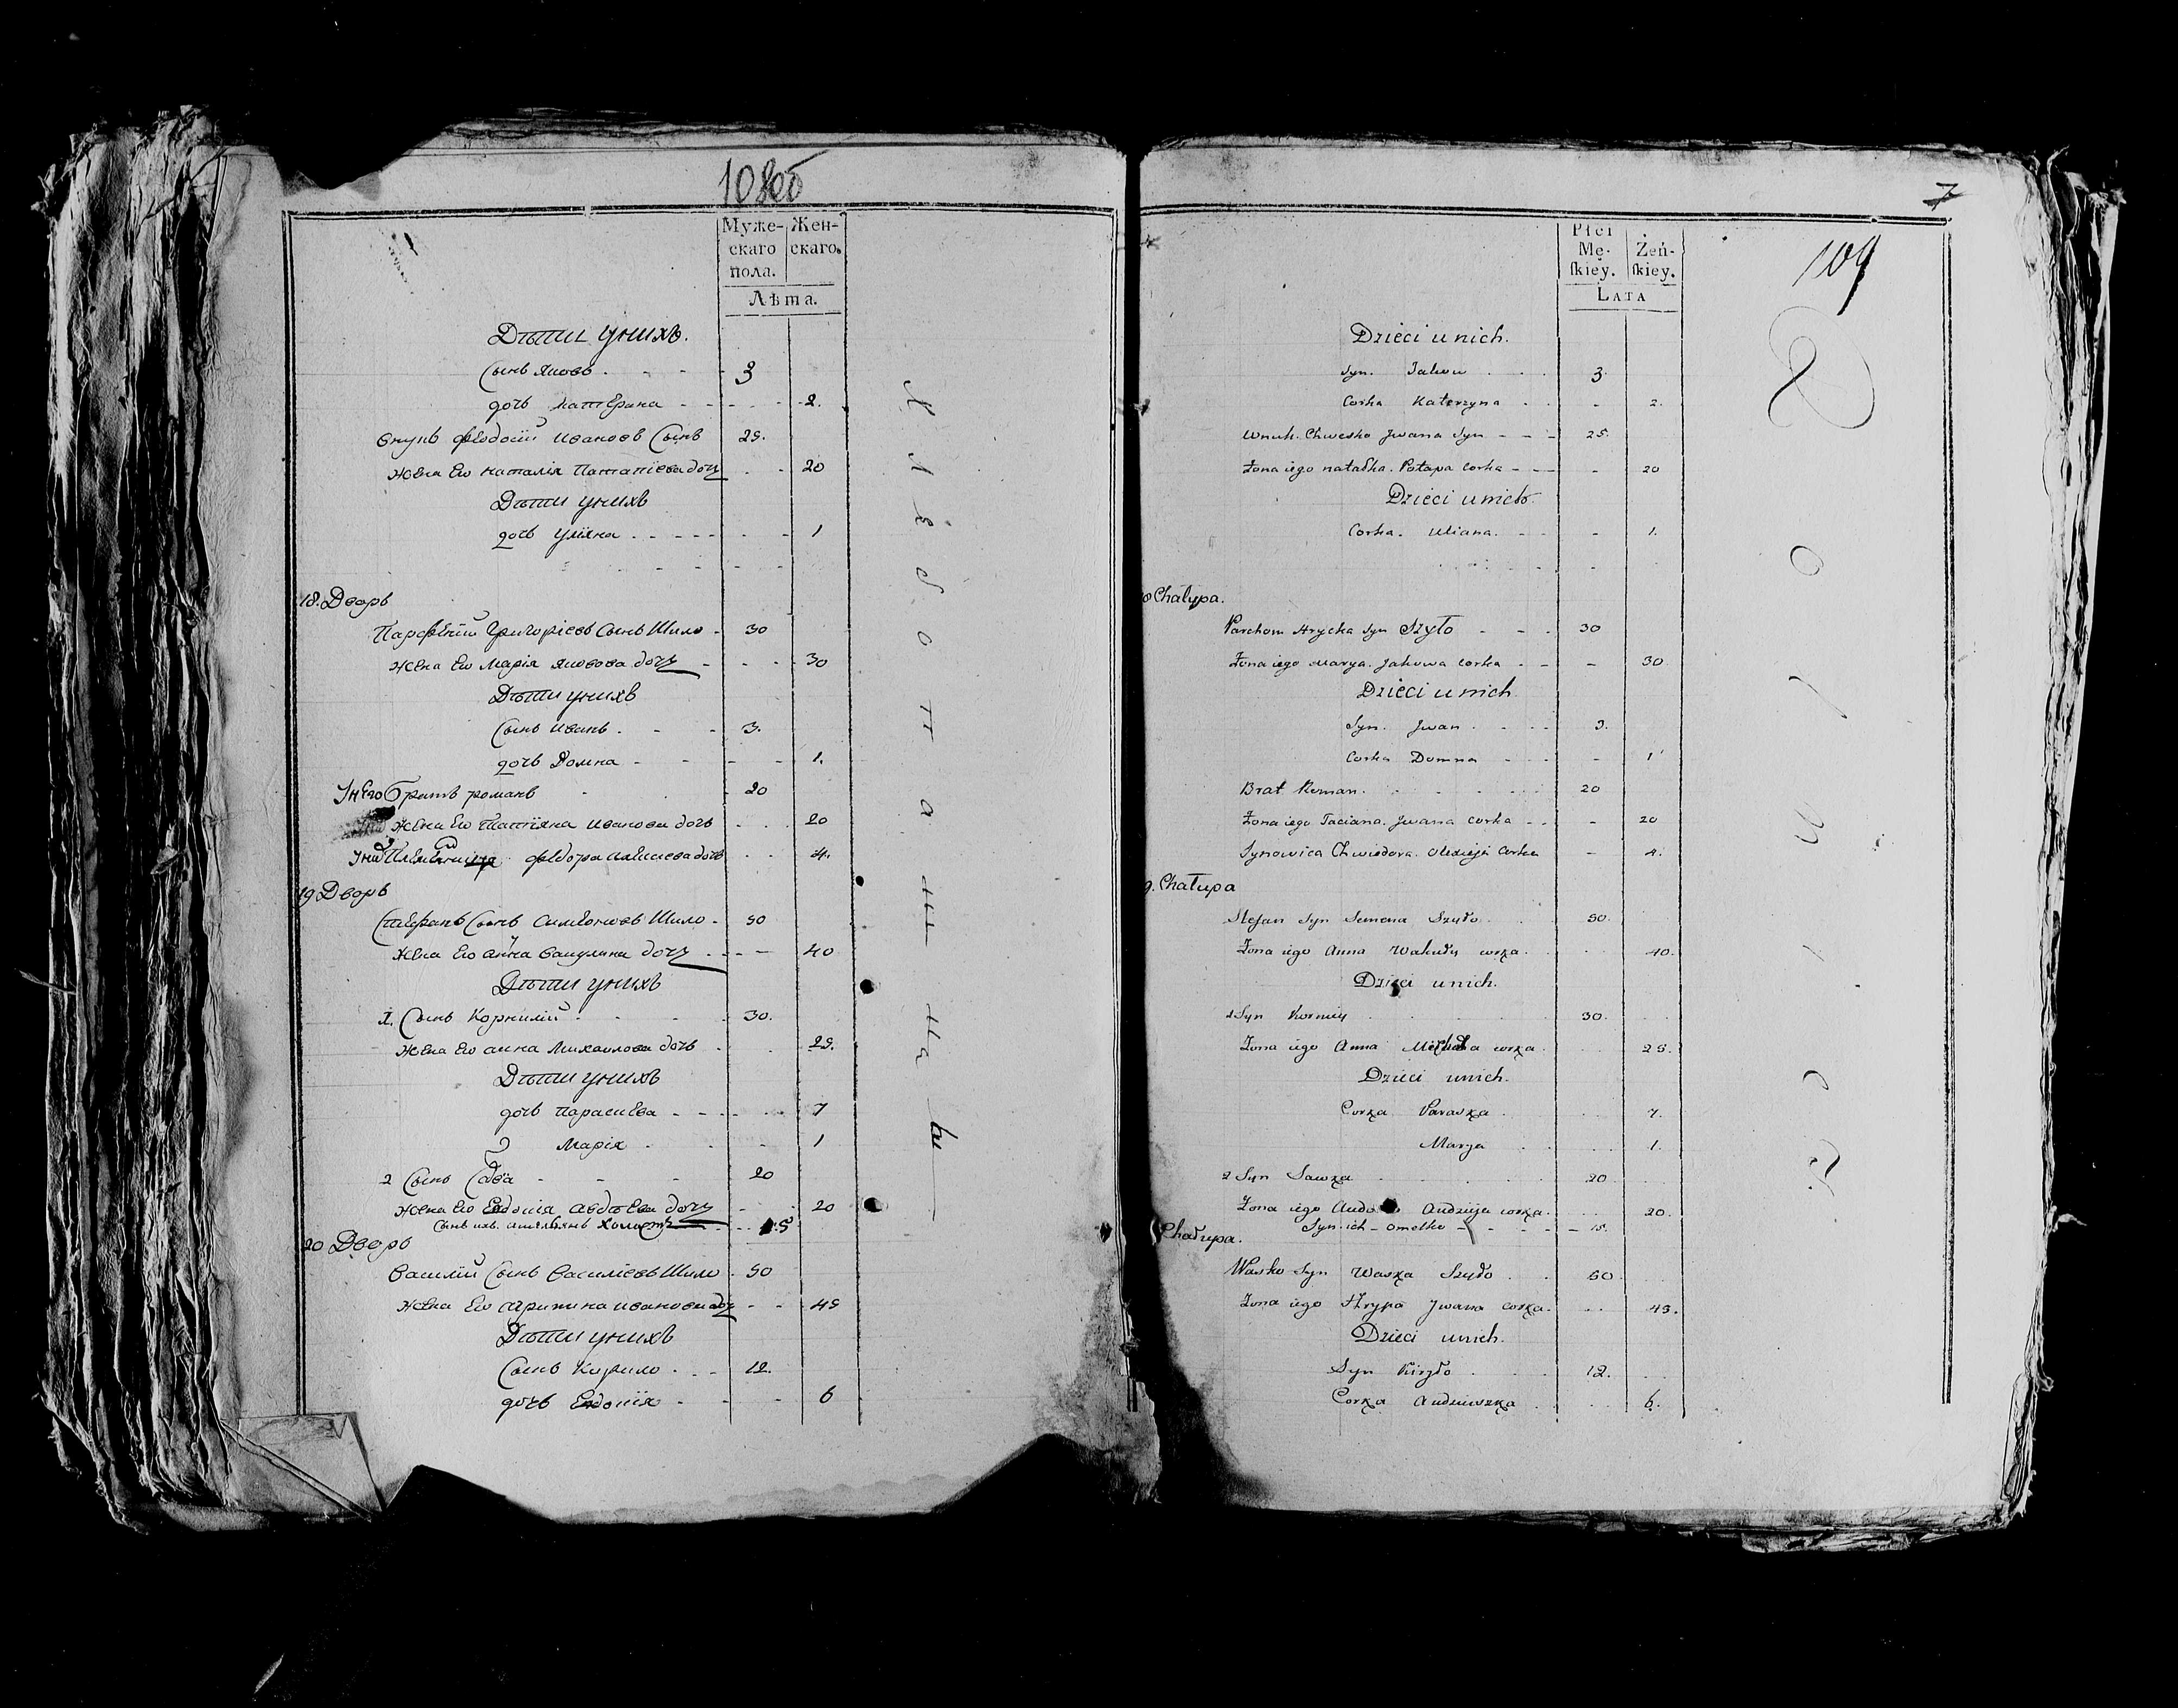 108об
Муже-
скаго
пола.
Жен-
скаго.
Лѣта.
Дѣти у нихъ.
Сынъ Яковъ 3
дочь Катерина 2.
Внукъ Феодосій Ивановъ Сынъ 25.
Жена Его Наталія Потапіева дочь 20
Дѣти у нихъ
дочь Уліяна 1
18. Дворъ
Парфеній Григоріевъ Сынъ Шило 30
Жена Его Марія Яковова дочь 30
Дѣти у нихъ
Сынъ Иванъ 3.
дочь Домна 1.
У него Братъ Романъ 20
Жена Его Татіяна Иванова дочь 20
Федора Алексиева дочь 4.
19 Дворъ
Стефанъ Сынъ Симеоновъ Шило 50
Жена Его Анна Вакулина дочь 40
Дѣти у нихъ
1. Сынъ Корнилій 30.
Жена Его Анна Михаилова дочь 25.
Дѣти у нихъ
дочь Параскева 7
Марія 1
2 Сынъ Сава 20
Жена Его Евдокія Авдѣева дочь 20
Сынъ ихъ Омельянъ Холостъ 15
20 Дворъ
Василій Сынъ Василіевъ Шило 50
Жена Его Ирина Иванова дочь 45
Дѣти у нихъ
Сынъ Кирило 12.
дочь Евдокія 6
Хлебопашцы
7
109
Płci
Mę-
ſkiey.
Żeń-
ſkiey.
Lata
Dzieci u nich.
Syn. Jakow 3.
Corka Katerzyna 2.
Wnuk. Chwesko Jwana Syn 25.
Żona iego Natalka. Potapa Corka 20
Dzieci u nich
Corka. Uliana. 1.
Chałupa.
Parchom Hrycka Syn Szyło 30
Żona iego Marya. Jakowa Corka 30
Dzieci u nich
Syn. Jwan 3.
Corka Domna 1
Brat Roman. 20
Żona iego Taciana. Jwana Corka 20
Synowica Chwiedora. Olexieja Corka 4.
9. Chałupa
Stefan Syn Semena Szydo 50.
Żona iego Anna Wakuły corka. 40.
Dzieci u nich.
1 Syn Korniey 30.
Żona iego Anna Michała corka 25.
Dzieci u nich.
Corka Paraska 7.
Marya 1.
2 Syn Sawka 20
Żona iego Andzieja corka. 20.
Syn ich - Omelko 15.
Chałupa.
Wasko Syn Waska Szydo 50
Żona iego Hrypa Jwana corka. 45.
Dzieci u nich.
Syn Kiryło 12.
Corka 6.